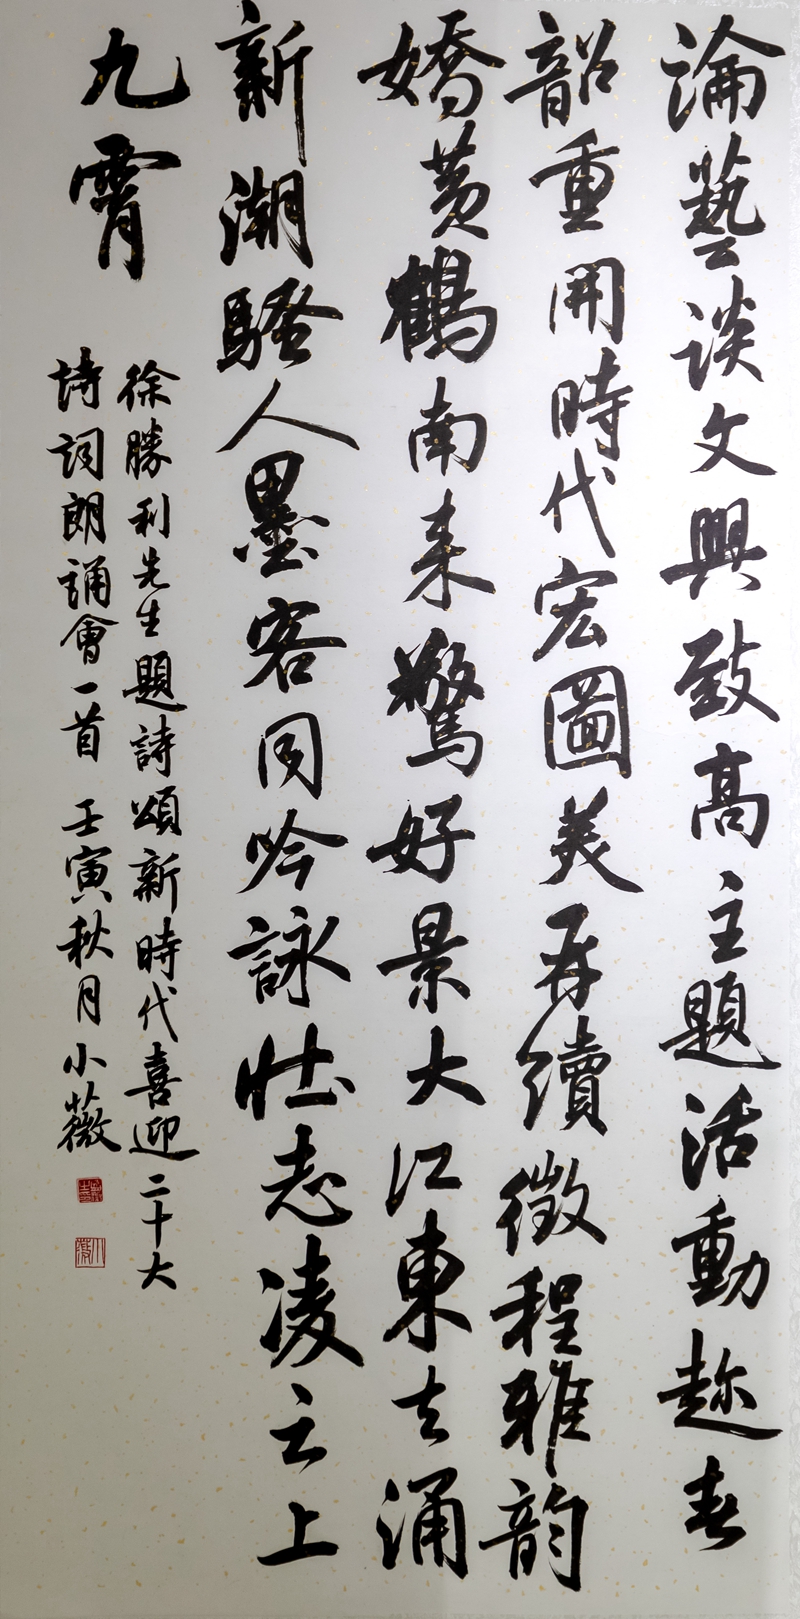 論藝談文興致高主題活動趂春
韶重開時代宏圖美再續徵程雅韵
嬌黄鶴南来驚好景大江東去涌
新潮騷人墨客同吟詠壮志凌云上
九霄
徐勝利先生題詩頌新時代喜迎二十大
詩詞朗誦會一首 壬寅秋月小薇